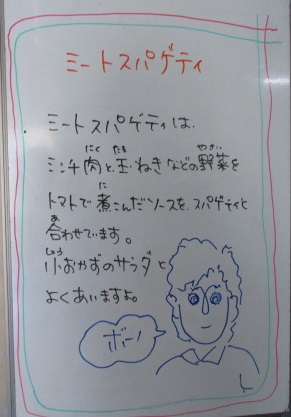 ミートスパゲティ
ミートスパゲティは、
ミンチ肉と玉ねぎなどの野菜を
トマトで煮こんだソースを、スパゲティと
合わせています。
小おかずのサラダと
よくあいますよ。
ボーノ